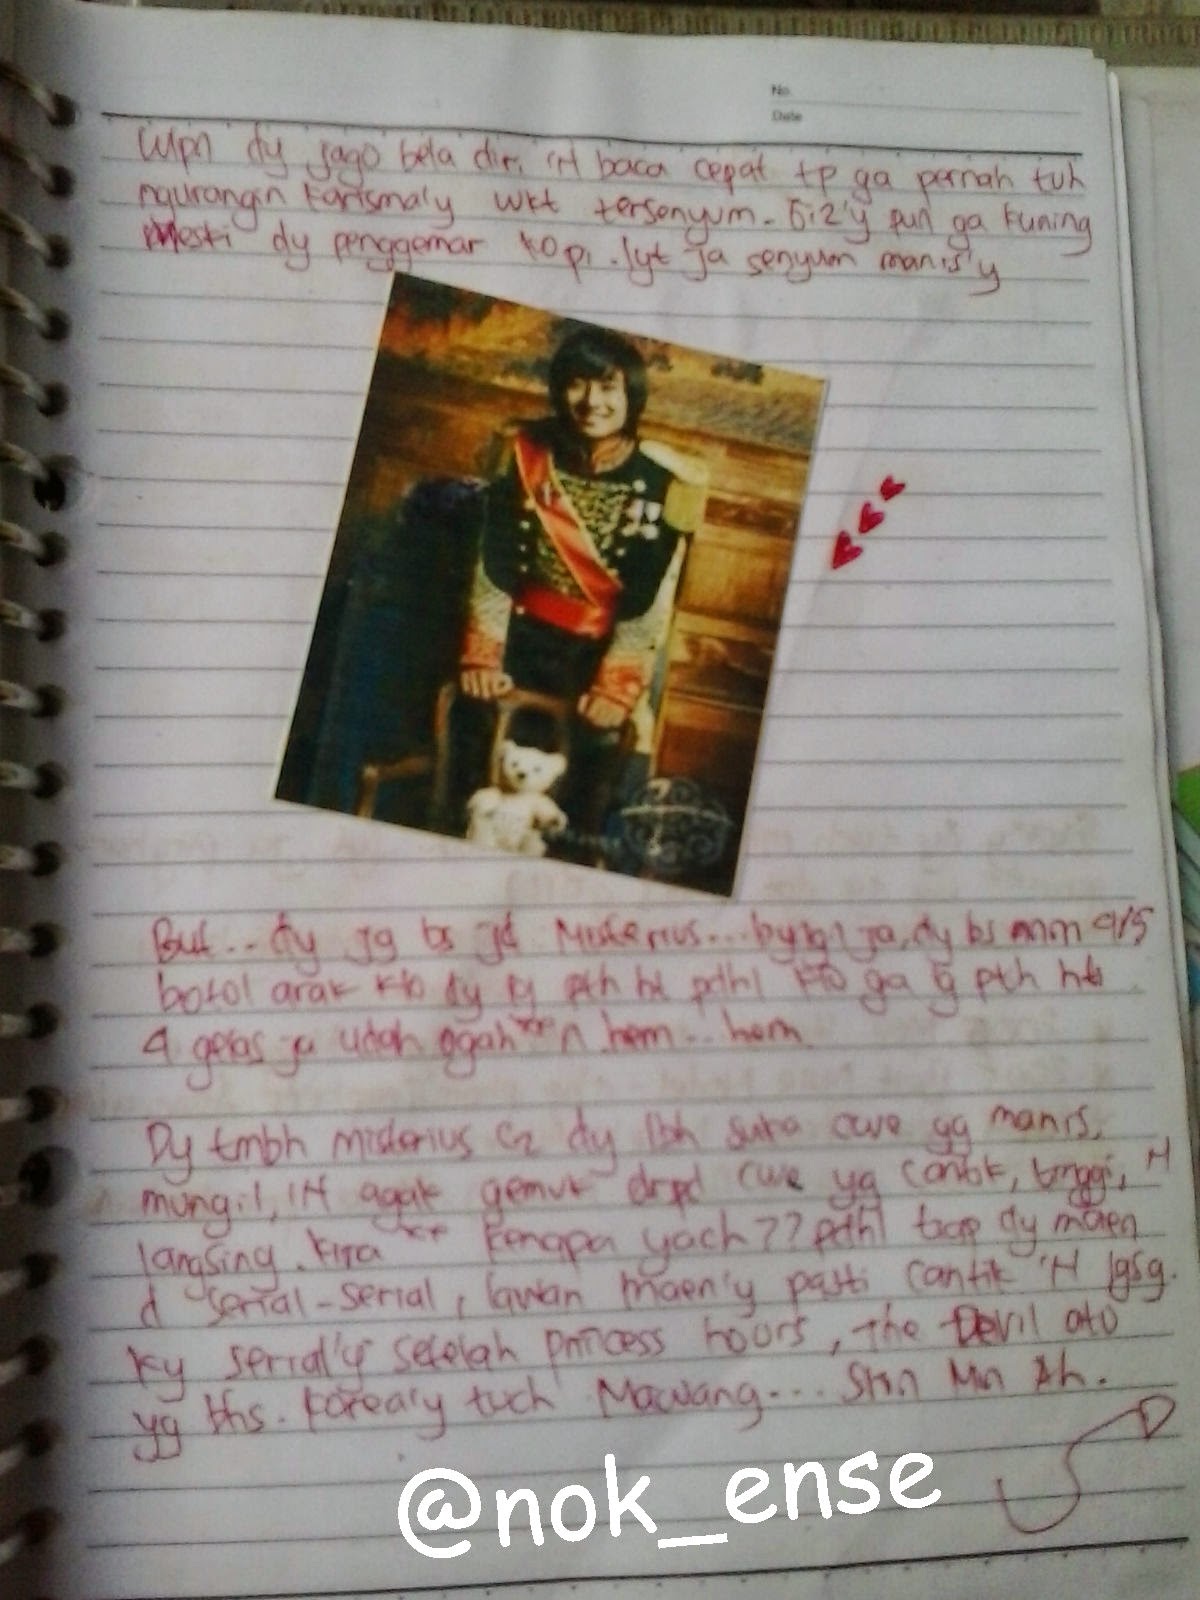 No.
Date
Wpn dy jago bela diri, 'N baca cepat tp ga pernah tuh
ngurangin karisma'y wkt tersenyum. Gi2'y pun ga kuning
Meski dy penggemar kopi. lyt ja senyum manis'y
But... dy jg bs jd Misterius... bygn ja, dy bs mnm 4/5
botol arak klo dy lg pth ht pdhl klo ga lg pth ht
4 gelas ja udah ogah"n hem... hem
Dy tmbh misterius Cz dy lbh suka cwe yg manis,
mungil, 'N agak gemuk drpd cwe yg cantik, tinggi, 'N
langsing. kira" kenapa yach?? pdhl tiap dy maen
d serial-serial, lawan maen'y pasti cantik 'N lgsg.
ky serial'y setelah princess hours, The Devil ato
yg bhs. Korea'y tuch Mawang... Shin Min Ah.
@nok_ense